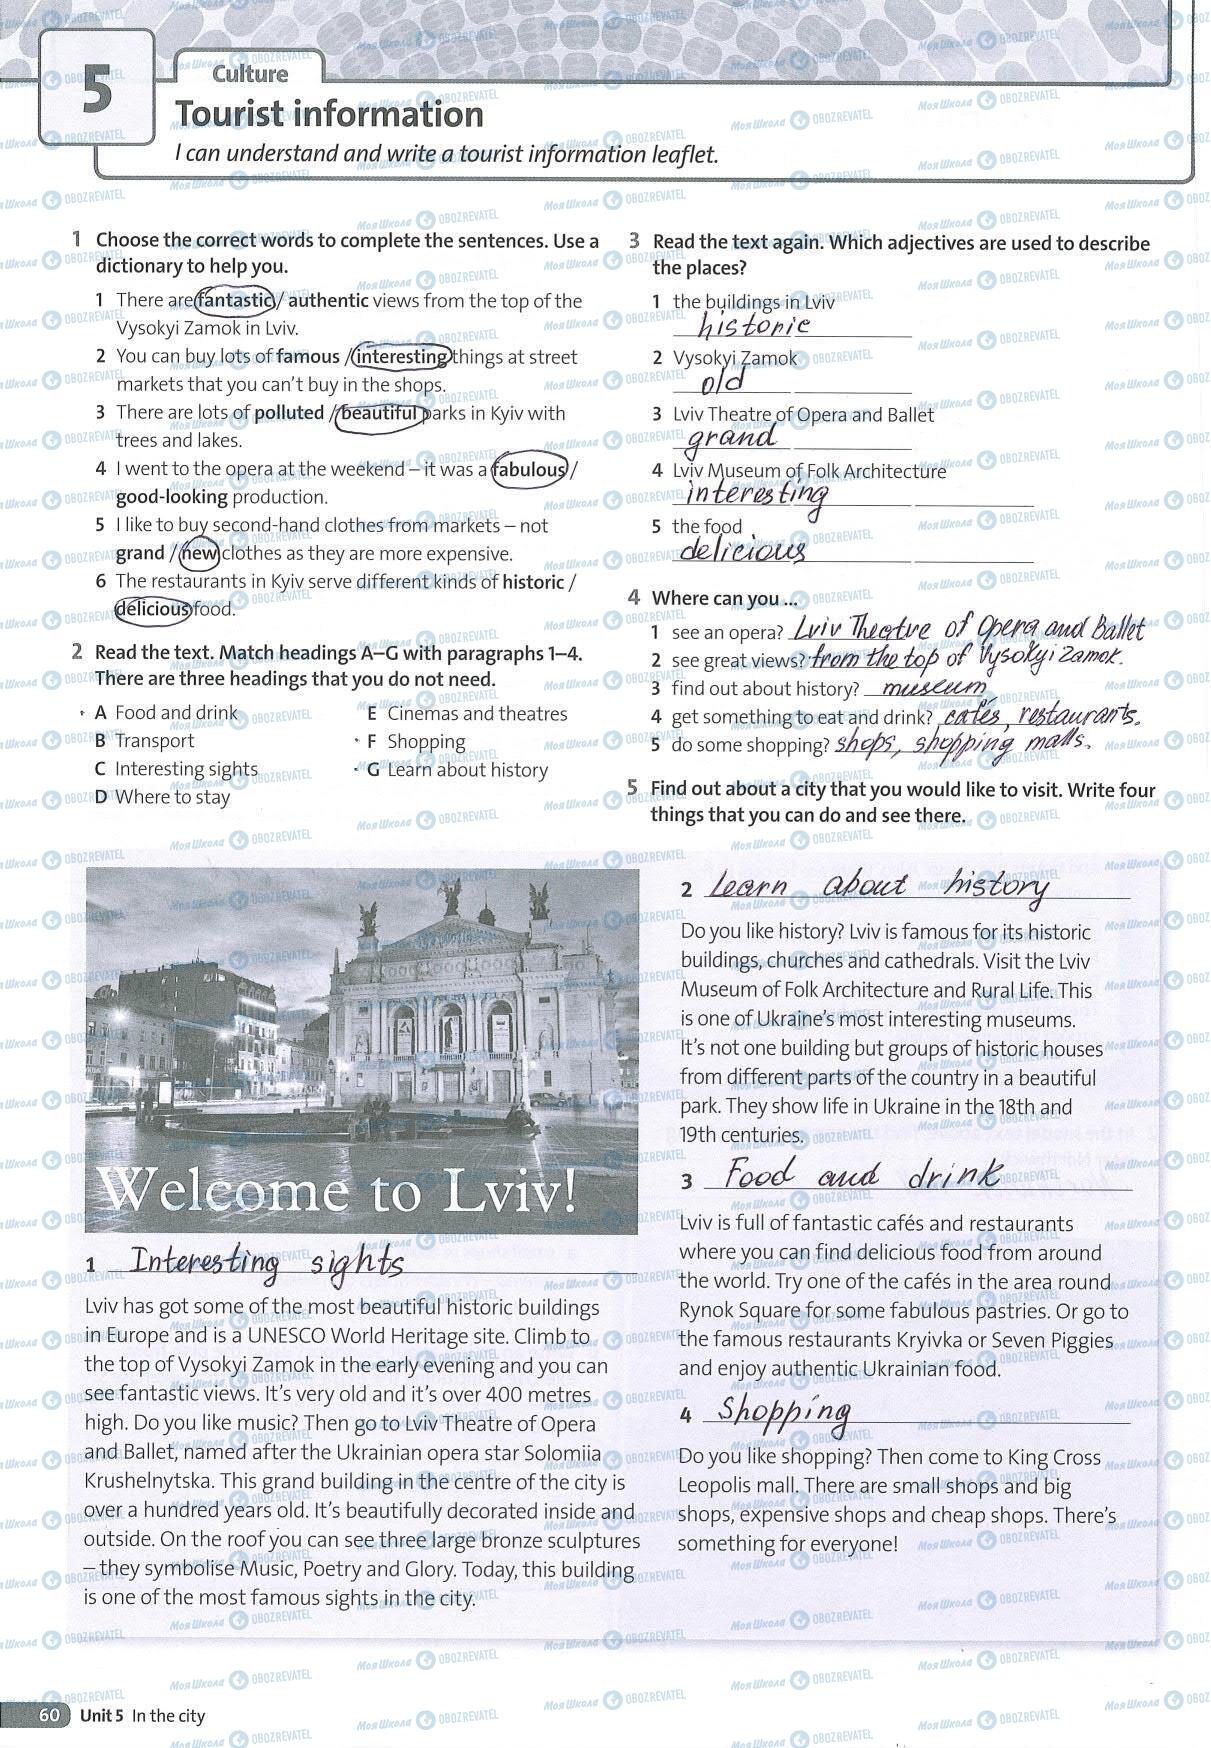 5
Culture
Tourist information
I can understand and write a tourist information leaflet.
1 Choose the correct words to complete the sentences. Use a
dictionary to help you.
1 There are fantastic / authentic views from the top of the
Vysokyi Zamok in Lviv.
2 You can buy lots of famous / interesting things at street
markets that you can't buy in the shops.
3 There are lots of polluted / beautiful parks in Kyiv with
trees and lakes.
4 I went to the opera at the weekend – it was a fabulous /
good-looking production.
5 I like to buy second-hand clothes from markets – not
grand / new clothes as they are more expensive.
6 The restaurants in Kyiv serve different kinds of historic /
delicious food.
2 Read the text. Match headings A–G with paragraphs 1–4.
There are three headings that you do not need.
A Food and drink
B Transport
C Interesting sights
D Where to stay
E Cinemas and theatres
F Shopping
G Learn about history
3 Read the text again. Which adjectives are used to describe
the places?
1 the buildings in Lviv
historic
2 Vysokyi Zamok
old
3 Lviv Theatre of Opera and Ballet
grand
4 Lviv Museum of Folk Architecture
interesting
5 the food
delicious
4 Where can you ...
1 see an opera? Lviv Theatre of Opera and Ballet
2 see great views? from the top of Vysokyi Zamok.
3 find out about history? museum
4 get something to eat and drink? cafés, restaurants.
5 do some shopping? shops, shopping malls.
5 Find out about a city that you would like to visit. Write four
things that you can do and see there.
Welcome to Lviv!
1 Interesting sights
Lviv has got some of the most beautiful historic buildings
in Europe and is a UNESCO World Heritage site. Climb to
the top of Vysokyi Zamok in the early evening and you can
see fantastic views. It's very old and it's over 400 metres
high. Do you like music? Then go to Lviv Theatre of Opera
and Ballet, named after the Ukrainian opera star Solomiia
Krushelnytska. This grand building in the centre of the city is
over a hundred years old. It's beautifully decorated inside and
outside. On the roof you can see three large bronze sculptures
– they symbolise Music, Poetry and Glory. Today, this building
is one of the most famous sights in the city.
2 Learn about history
Do you like history? Lviv is famous for its historic
buildings, churches and cathedrals. Visit the Lviv
Museum of Folk Architecture and Rural Life. This
is one of Ukraine's most interesting museums.
It's not one building but groups of historic houses
from different parts of the country in a beautiful
park. They show life in Ukraine in the 18th and
19th centuries.
3 Food and drink
Lviv is full of fantastic cafés and restaurants
where you can find delicious food from around
the world. Try one of the cafés in the area round
Rynok Square for some fabulous pastries. Or go to
the famous restaurants Kryivka or Seven Piggies
and enjoy authentic Ukrainian food.
4 Shopping
Do you like shopping? Then come to King Cross
Leopolis mall. There are small shops and big
shops, expensive shops and cheap shops. There's
something for everyone!
60 Unit 5 In the city
Моя Школа OBOZREVATEL